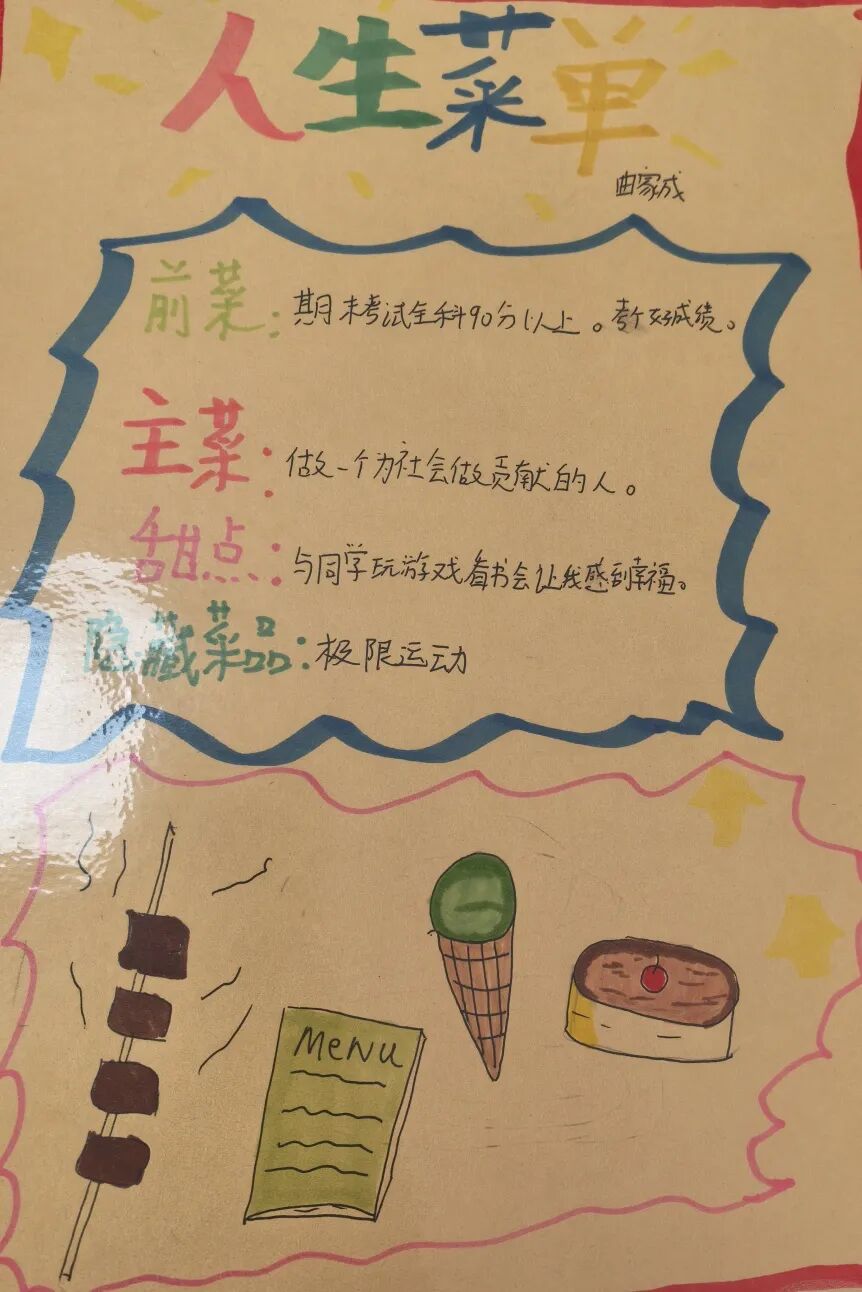 人生菜单
曲家成
前菜：期末考试全科90分以上。考个好成绩。
主菜：做一个为社会做贡献的人。
甜点：与同学玩游戏看书会让我感到幸福。
隐藏菜品：极限运动
Menu